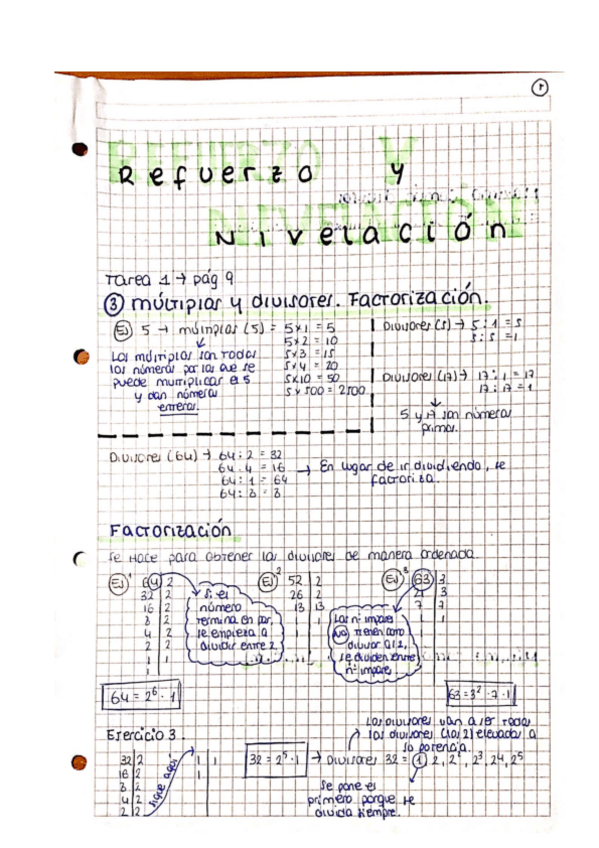 1
Refuerzo y
Nivelación
Tarea 1 → pág 9
③ múltiplos y divisores. Factorización.
Ej 5 → múltiplos (5) = 5x1 = 5
5x2 = 10
5x3 = 15
5x4 = 20
5x10 = 50
5x500 = 2500
Los múltiplos son todos
los números por los que se
puede multiplicar el 5
y dan números
enteros.
Divisores (5) → 5:1 = 5
5:5 = 1
Divisores (17) → 17:1 = 17
17:17 = 1
5 y 17 son números
primos.
Divisores (64) → 64:2 = 32
64:4 = 16
64:1 = 64
64:8 = 8
→ En lugar de ir dividiendo, se
factoriza.
Factorización
Se Hace para obtener los divisores de manera ordenada
Ej 1
64 | 2
32 | 2
16 | 2
8 | 2
4 | 2
2 | 2
1 | 1
1
64 = 2⁶ · 1
Si el
número
termina en par,
se empieza a
dividir entre 2.
Ej 2
52 | 2
26 | 2
13 | 13
1 | 1
Ej 3
63 | 3
21 | 3
7 | 7
1 | 1
Los nº impares
no tienen como
divisor al 2,
se dividen entre
nº impares
63 = 3² · 7 · 1
Ejercicio 3.
32 | 2
16 | 2
8 | 2
4 | 2
2 | 2
sigue aquí
1 | 1
1
32 = 2⁵ · 1 → Divisores 32 = 1, 2, 2², 2³, 2⁴, 2⁵
Los divisores van a ser todos
los divisores (1 o 2) elevados a
su potencia.
Se pone el
primero porque se
divida siempre.